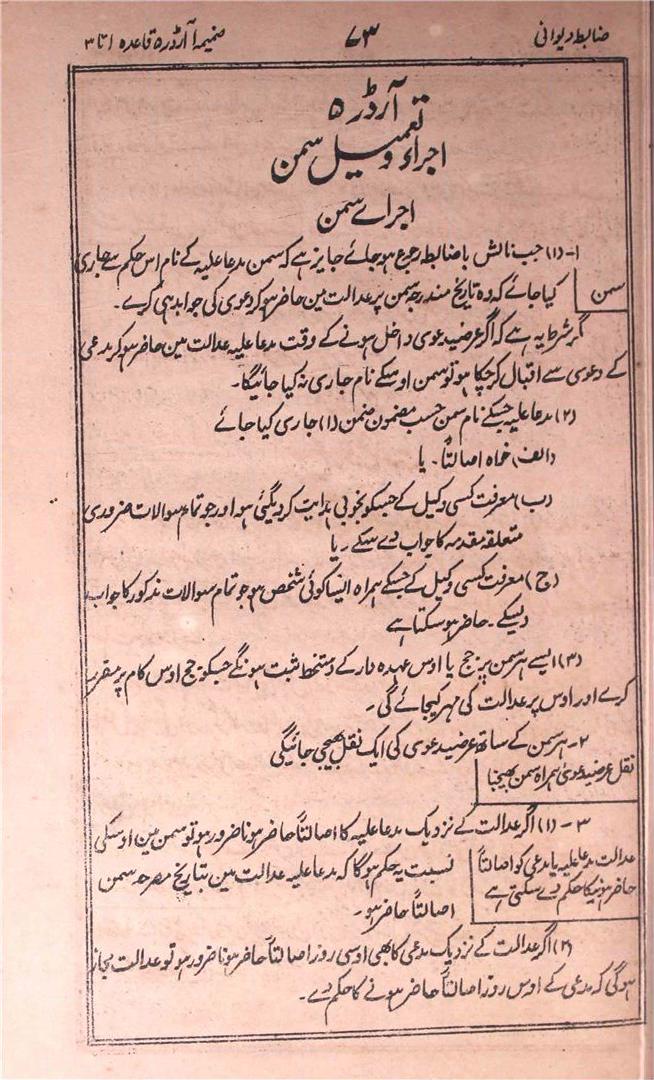 ضابطہ دیوانی
۷۳
ضمیمہ ا آرڈر ۵ قاعدہ ا تا ۳
آرڈر ۵
اجراء و تعمیل سمن
اجراے سمن
۱- (۱) جب نالش باضابطہ رجوع ہو جائے جایز ہے کہ سمن مدعا علیہ کے نام اس حکم سے جاری
سمن
کیا جائے کہ وہ تاریخ مندرجہ سمن پر عدالت مین حاضر ہو کر دعوی کی جوابدہی کرے۔
مگر شرط یہ ہے کہ اگر عرضیدعوی داخل ہونے کے وقت مدعا علیہ عدالت مین حاضر ہو کر مدعی
کے دعوی سے اقبال کر چکا ہو تو سمن اوسکے نام جاری نہ کیا جائیگا۔
(۲) مدعا علیہ جسکے نام سمن حسب مضمون ضمن (۱) جاری کیا جائے
(الف) خواہ اصالتاً۔ یا
(ب) معرفت کسی وکیل کے جسکو بخوبی ہدایت کر دیگئی ہو اور جو تمام سوالات ضروری
متعلقہ مقدمہ کا جواب دے سکے۔ یا
(ج) معرفت کسی وکیل کے جسکے ہمراہ ایسا کوئی شخص ہو جو تمام سوالات مذکور کا جواب
دیسکے۔ حاضر ہو سکتا ہے
(۳) ایسے ہر سمن پر جج یا اوس عہدہ دار کے دستخط ثبت ہونگے جسکو جج اوس کام پر مقرر
کرے اور اوس پر عدالت کی مہر کیجائے گی۔
۲- ہر سمن کے ساتھ عرضیدعوی کی ایک نقل بھیجی جائیگی
نقل عرضیدعوی ہمراہ سمن بھیجنا
۳- (۱) اگر عدالت کے نزدیک مدعا علیہ کا اصالتاً حاضر ہونا ضرور ہو تو سمن مین اوسکی
عدالت مدعا علیہ یا مدعی کو اصالتاً
حاضر ہونیکا حکم دے سکتی ہے
نسبت یہ حکم ہوگا کہ مدعا علیہ عدالت مین بتاریخ مصرحہ سمن
اصالتاً حاضر ہو۔
(۲) اگر عدالت کے نزدیک مدعی کا بھی اوسی روز اصالتاً حاضر ہونا ضرور ہو تو عدالت مجاز
ہوگی کہ مدعی کے اوس روز اصالتاً حاضر ہونے کا حکم دے۔